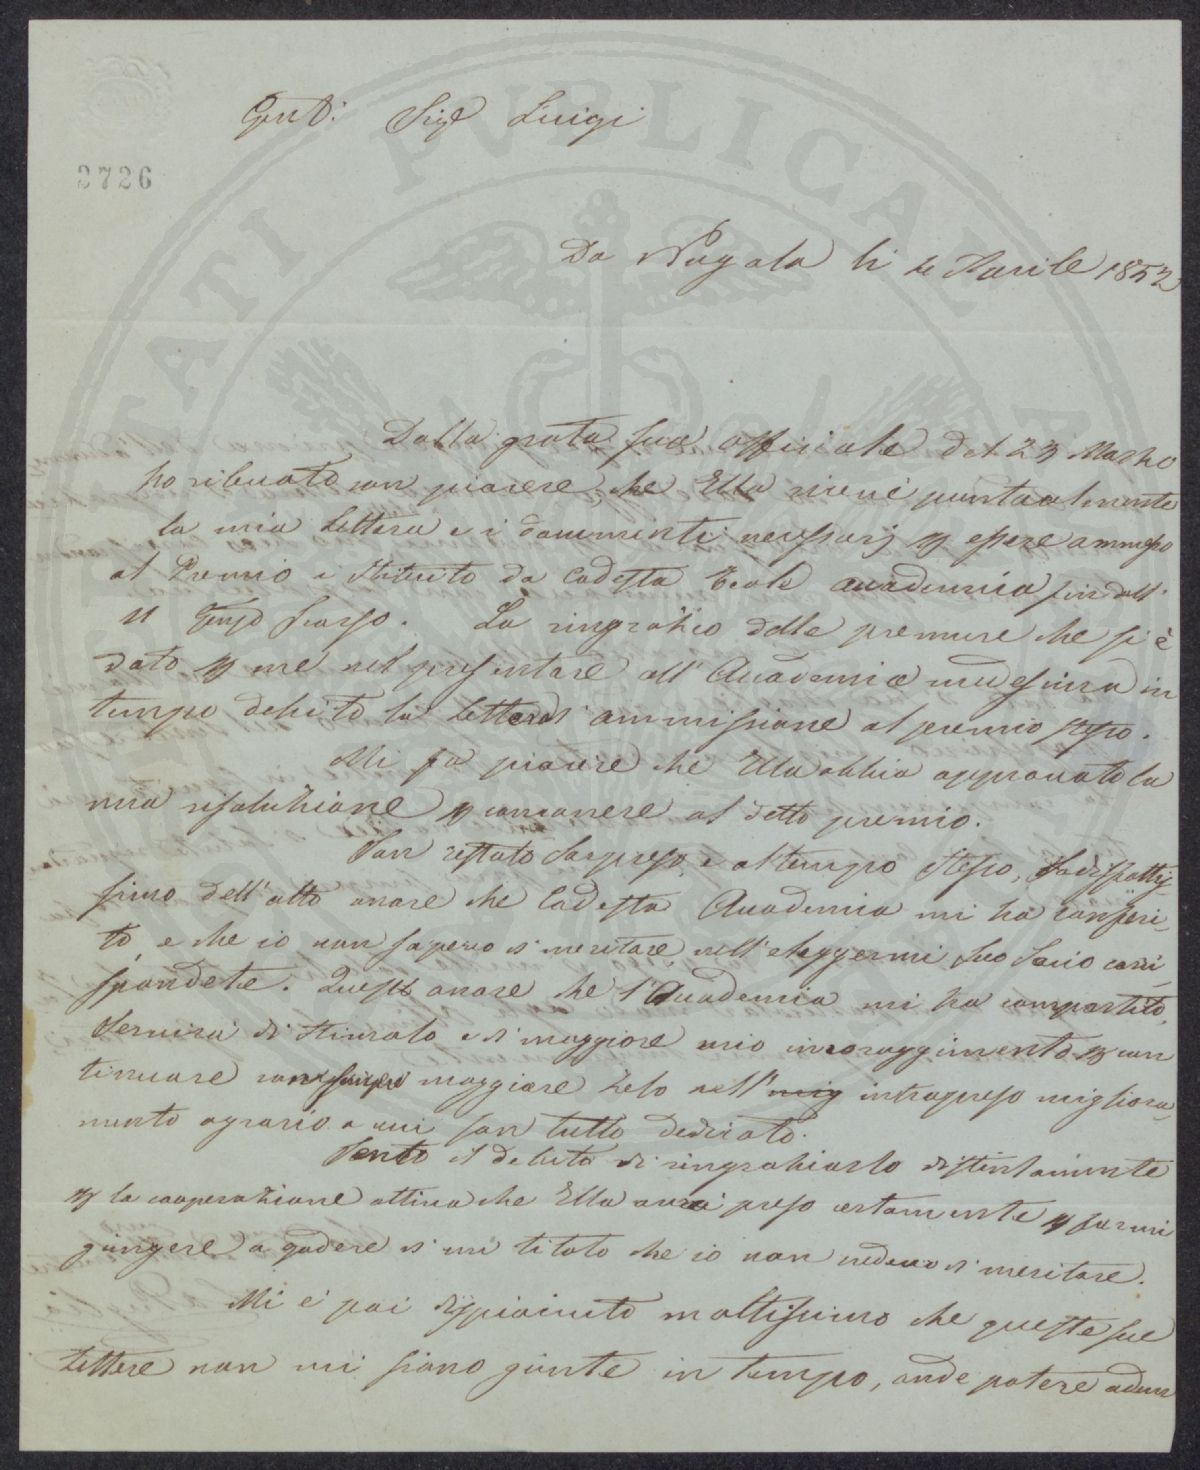 Gent: Sigr Luigi
2726
Da Pugola li 4 Aprile 1852
Dalla grata sua officiale del 23 Marzo
ho rilevato con piacere, che Ella ricevè puntualmente
la mia lettera e i documenti necessarj p essere ammesso
al Premio istituito da Codesta Reale Accademia fin dall'
11 Genjo scorso. La ringrazio delle premure che si è
dato p me nel presentare all' Accademia medesima in
tempo debito la lettera d'ammissione al premio stesso.
Mi fa piacere che Ella abbia approvato la
mia risoluzione p concorrere al detto premio.
Son restato sorpreso, e al tempo stesso, sodisfattis=
simo dell'alto onore che Codesta Accademia mi ha conferi=
to, e che io non sapevo di meritare, nell'eleggermi suo Socio corri=
spondete. Questo onore che l'Accademia mi ha compartito,
servirà di stimolo e di maggiore mio incoraggimento p con
tinuare con sempre maggiore zelo nell' mig intrapreso migliora=
mento agrario a cui son tutto dedicato.
Sento il debito di ringraziarlo distintamente
p la cooperazione attiva che Ella avrà preso certamente p farmi
giungere a godere d'un titolo che io non credevo di meritare.
Mi è poi dispiaciuto moltissimo che queste sue
lettere non mi siano giunte in tempo, onde potere adem